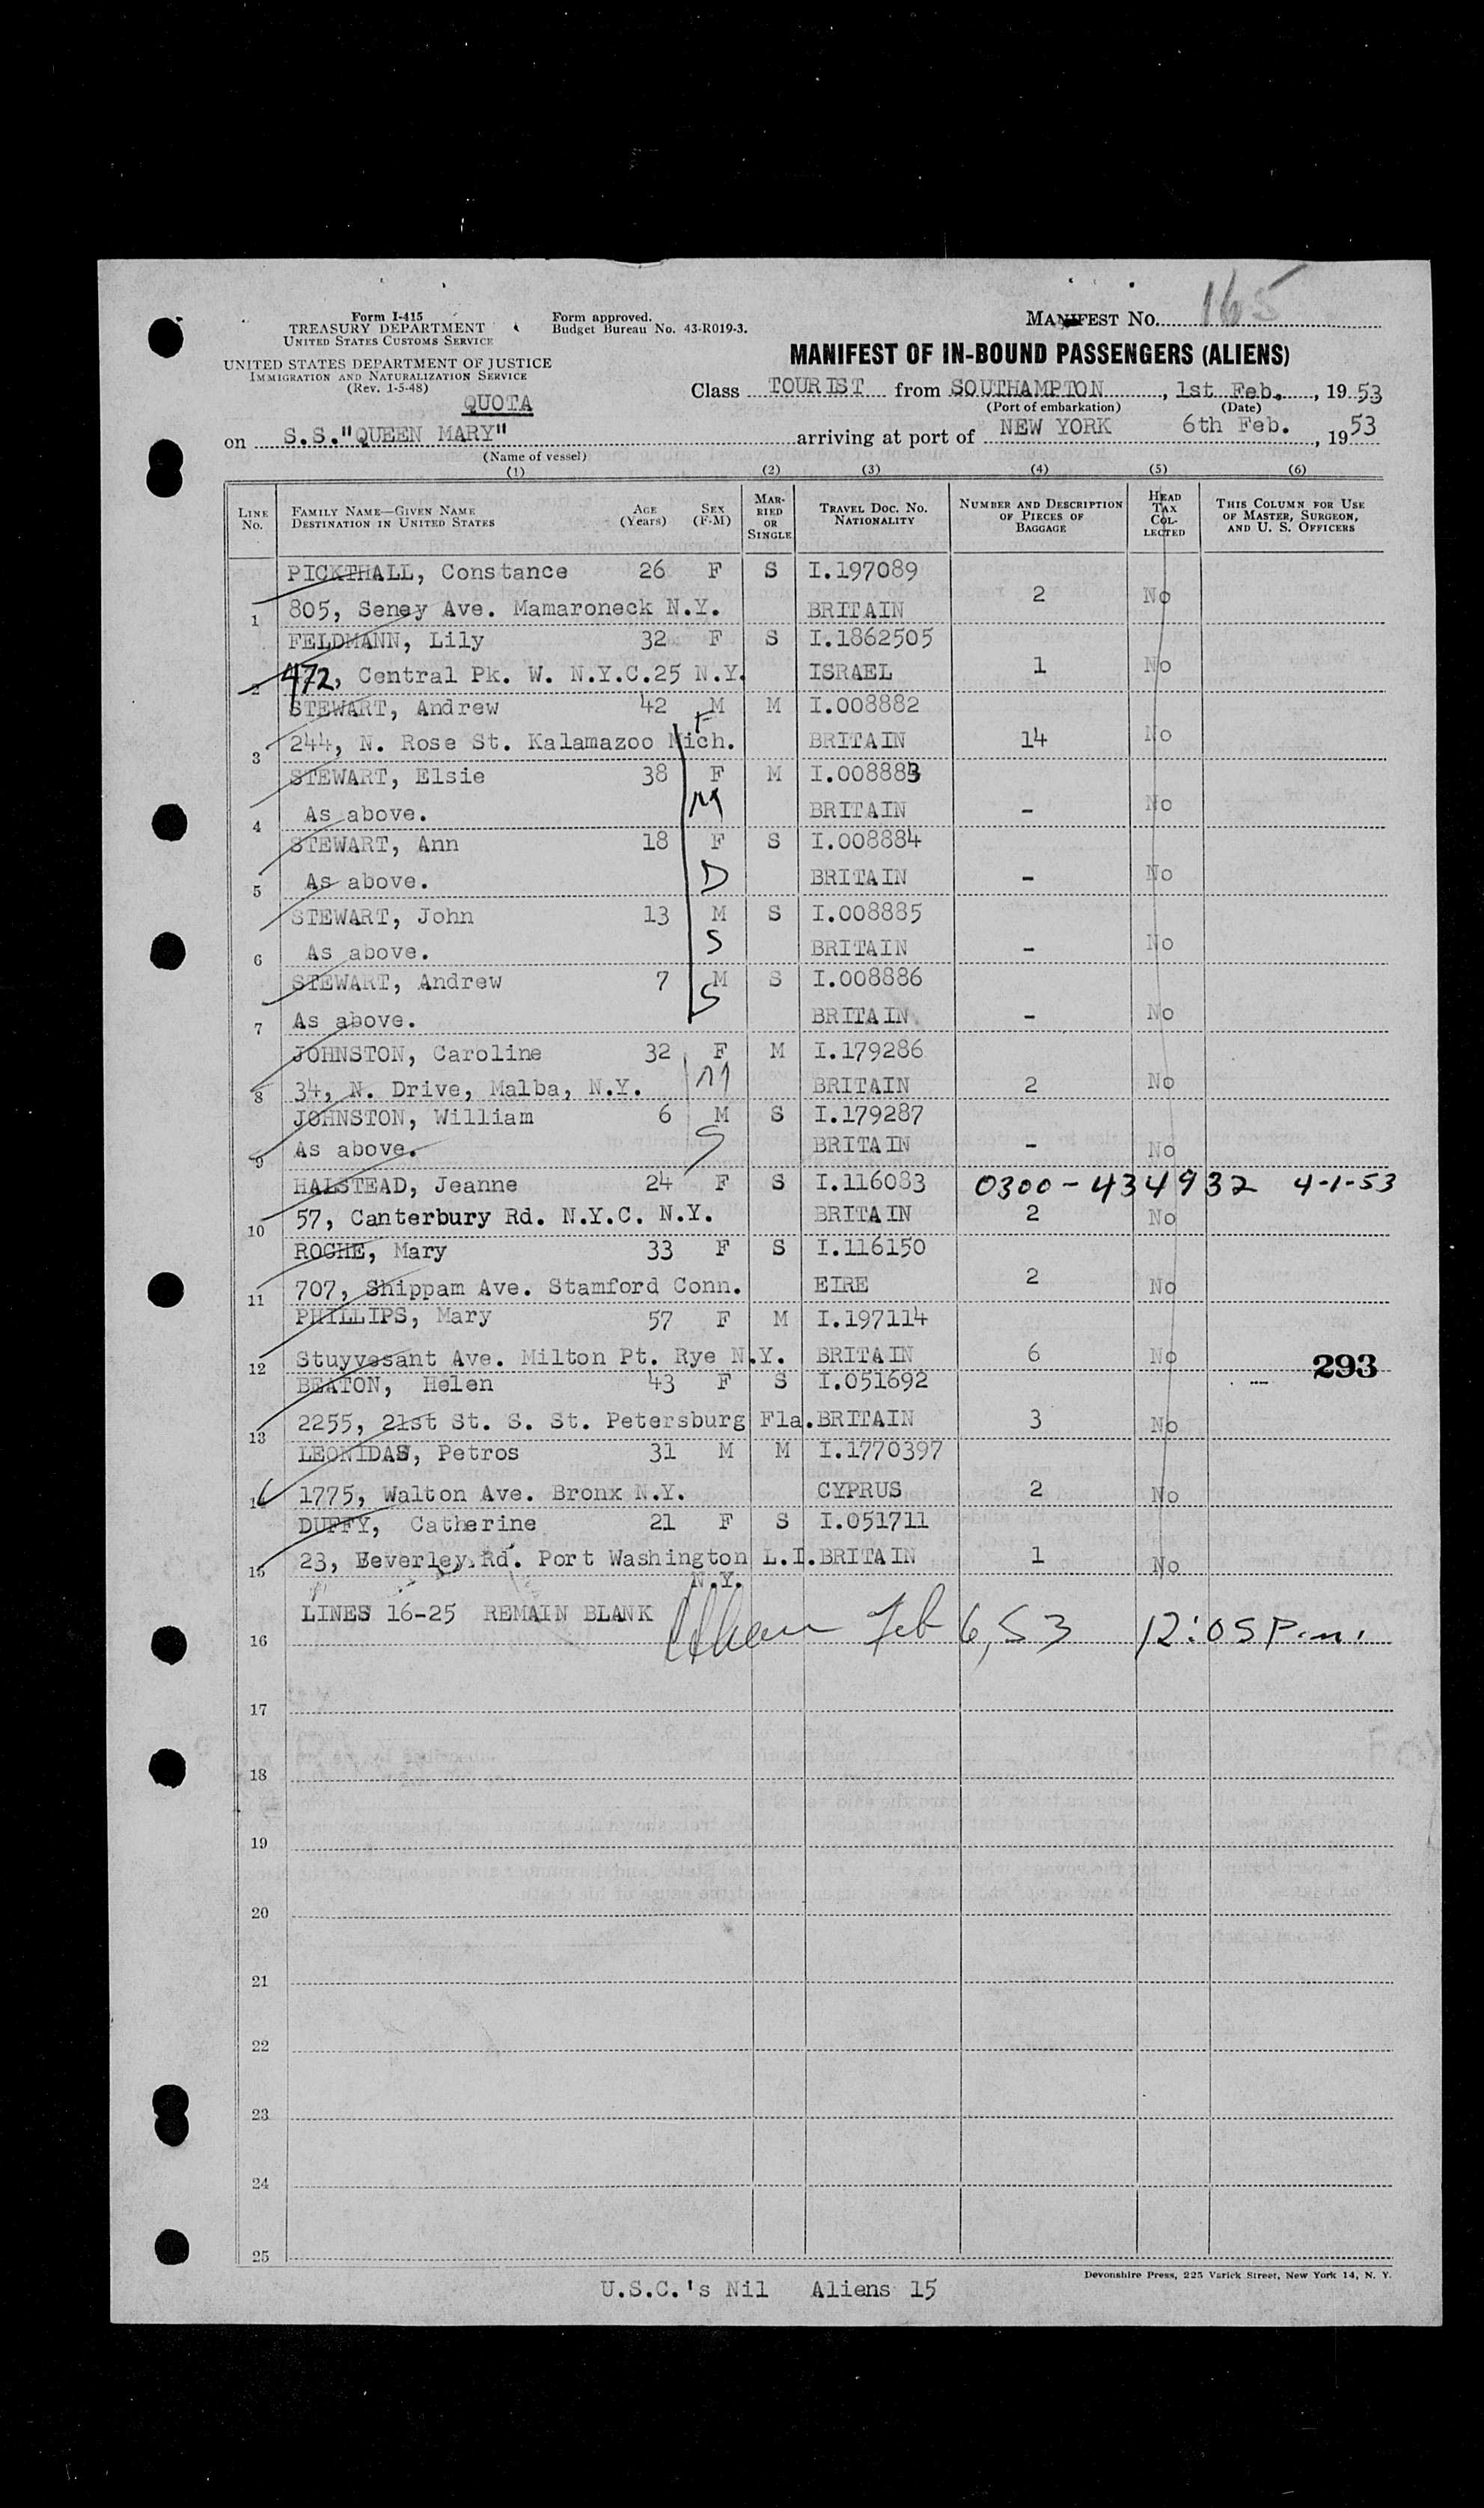 165
Form I-415
TREASURY DEPARTMENT
UNITED STATES CUSTOMS SERVICE
Form approved.
Budget Bureau No. 43-R019-3.
MANIFEST NO.
UNITED STATES DEPARTMENT OF JUSTICE
IMMIGRATION AND NATURALIZATION SERVICE
(Rev. 1-5-48)
MANIFEST OF IN-BOUND PASSENGERS (ALIENS)
QUOTA
Class TOURIST from SOUTHAMPTON, 1st Feb., 1953
(Port of embarkation) (Date)
on S.S."QUEEN MARY" arriving at port of NEW YORK 6th Feb., 1953
(Name of vessel)
(1) (2) (3) (4) (5) (6)
LINE No. FAMILY NAME—GIVEN NAME DESTINATION IN UNITED STATES AGE (Years) SEX (F-M) MARRIED OR SINGLE TRAVEL DOC. NO. NATIONALITY NUMBER AND DESCRIPTION OF PIECES OF BAGGAGE HEAD TAX COLLECTED THIS COLUMN FOR USE OF MASTER, SURGEON, AND U. S. OFFICERS
PICKTHALL, Constance 26 F S I.197089
1 805, Seney Ave. Mamaroneck N.Y. BRITAIN 2 No
FELDMANN, Lily 32 F S I.1862505
2 472, Central Pk. W. N.Y.C.25 N.Y. ISRAEL 1 No
STEWART, Andrew 42 M M I.008882
F
3 244, N. Rose St. Kalamazoo Mich. BRITAIN 14 No
STEWART, Elsie 38 F M I.008883
4 As above. M BRITAIN - No
STEWART, Ann 18 F S I.008884
5 As above. D BRITAIN - No
STEWART, John 13 M S I.008885
6 As above. S BRITAIN - No
STEWART, Andrew 7 M S I.008886
7 As above. S BRITAIN - No
JOHNSTON, Caroline 32 F M I.179286
8 34, N. Drive, Malba, N.Y. M BRITAIN 2 No
JOHNSTON, William 6 M S I.179287
9 As above. S BRITAIN - No
HALSTEAD, Jeanne 24 F S I.116083 0300-434932 4-1-53
10 57, Canterbury Rd. N.Y.C. N.Y. BRITAIN 2 No
ROCHE, Mary 33 F S I.116150
11 707, Shippam Ave. Stamford Conn. EIRE 2 No
PHILLIPS, Mary 57 F M I.197114
12 Stuyvesant Ave. Milton Pt. Rye N.Y. BRITAIN 6 No 293
BEATON, Helen 43 F S I.051692
13 2255, 21st St. S. St. Petersburg Fla. BRITAIN 3 No
LEONIDAS, Petros 31 M M I.1770397
14 1775, Walton Ave. Bronx N.Y. CYPRUS 2 No
DUFFY, Catherine 21 F S I.051711
15 23, Beverley Rd. Port Washington L.I. BRITAIN 1 No
N.Y.
LINES 16-25 REMAIN BLANK
16 Feb 6, 53 12:05 P.m.
17
18
19
20
21
22
23
24
25
Devonshire Press, 225 Varick Street, New York 14, N. Y.
U.S.C.'s Nil Aliens 15